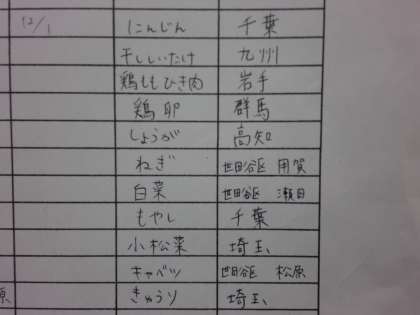 12/1 にんじん 千葉
干ししいたけ 九州
鶏ももひき肉 岩手
鶏卵 群馬
しょうが 高知
ねぎ 世田谷区 用賀
白菜 世田谷区 瀬田
もやし 千葉
小松菜 埼玉
キャベツ 世田谷区 松原
原 きゅうり 埼玉